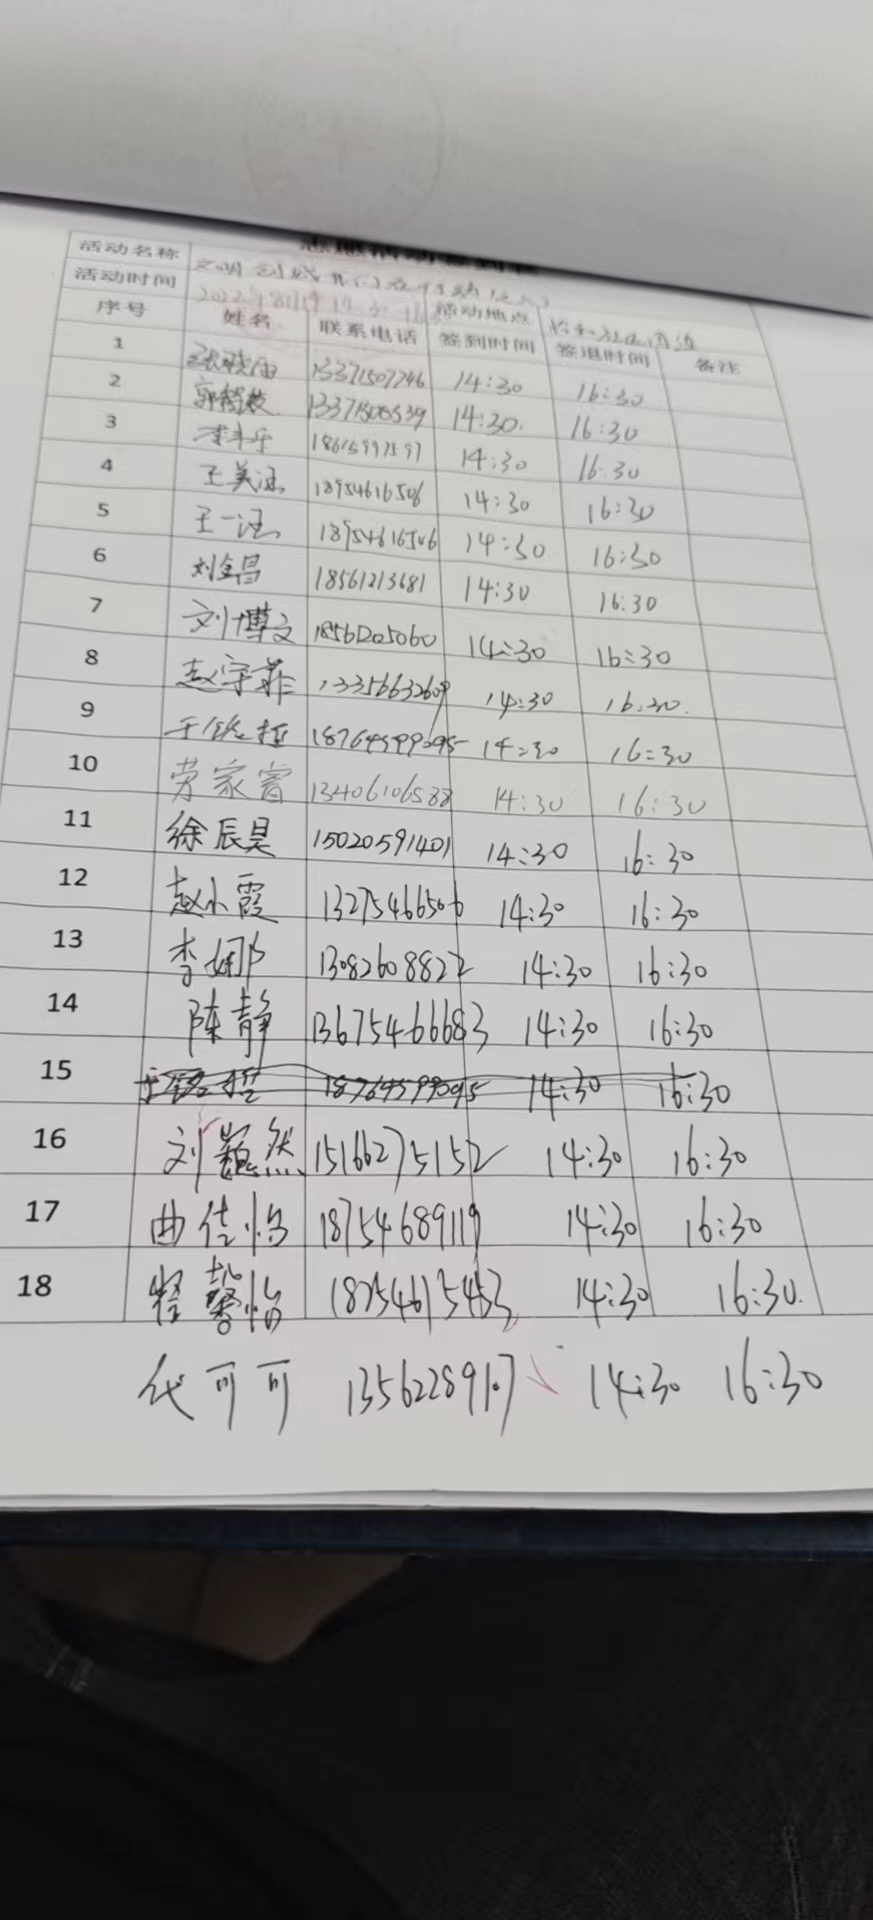 活动名称
活动时间 活动地点
序号 姓名 联系电话 签到时间 签退时间 备注
1 13371507746 14:30 16:30
2 14:30. 16:30
3 14:30 16:30
4 王美涵 18954616506 14:30 16:30
5 王一涵 18954616506 14:30 16:30
6 刘金昌 18561213681 14:30 16:30
7 刘博文 18561205060 14:30 16:30
8 赵宇菲 13356632609 14:30 16:30.
9 18764599095 14:30 16:30
10 劳家睿 13406106588 14:30 16:30
11 徐辰昊 15020591401 14:30 16:30
12 赵小霞 13275466506 14:30 16:30
13 李娜 13082608822 14:30 16:30
14 陈静 13675466683 14:30 16:30
15 18764599095 14:30 16:30
16 刘巍然 15166275152 14:30 16:30
17 曲佳怡 18754689119 14:30 16:30
18 馨怡 18254615453 14:30 16:30.
代可可 14:30 16:30